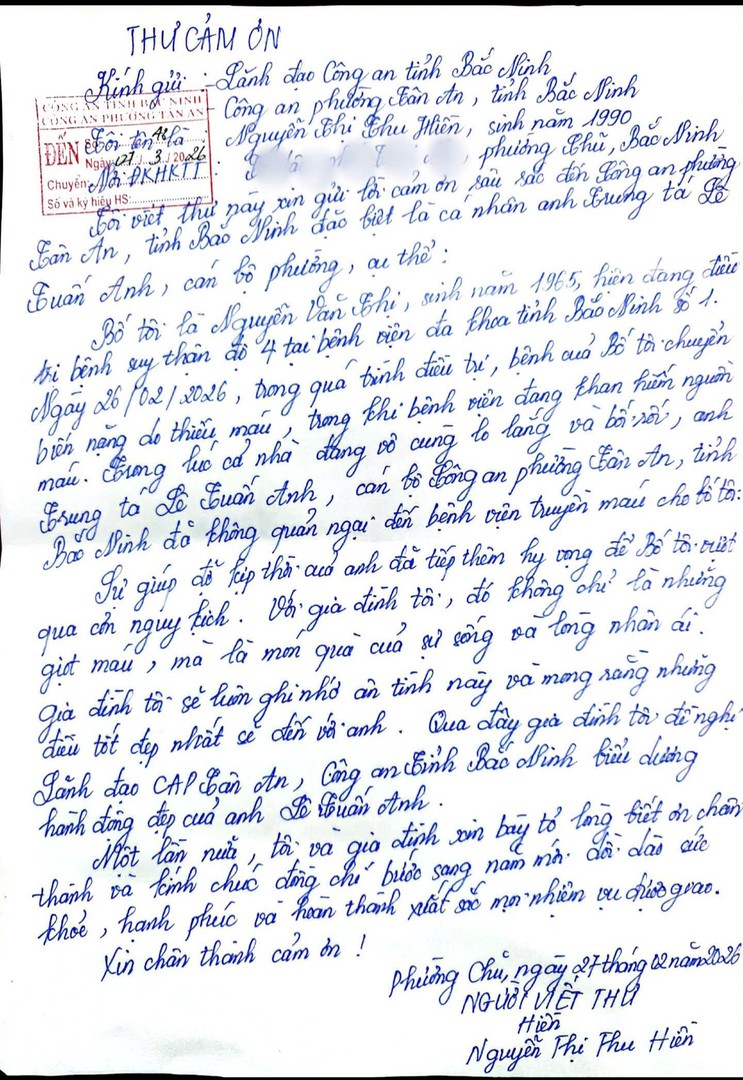 THƯ CẢM ƠN
Kính gửi : - Lãnh đạo Công an tỉnh Bắc Ninh
- Công an phường Tân An, tỉnh Bắc Ninh
CÔNG AN TỈNH BẮC NINH
CÔNG AN PHƯỜNG TÂN AN
ĐẾN
Số:
Ngày: 07/3/2026
Chuyển:
Số và ký hiệu HS:
Tôi tên là : Nguyễn Thị Thu Hiền, sinh năm 1990
Nơi ĐKHKTT : phường Chũ, Bắc Ninh
Tôi viết thư này xin gửi lời cảm ơn sâu sắc đến Công an phường
Tân An, tỉnh Bắc Ninh đặc biệt là cá nhân anh Trung tá Lê
Tuấn Anh, cán bộ phường, cụ thể :
Bố tôi là Nguyễn Văn Thi, sinh năm 1965, hiện đang điều
trị bệnh suy thận độ 4 tại bệnh viện đa khoa tỉnh Bắc Ninh số 1.
Ngày 26/02/2026, trong quá trình điều trị, bệnh của Bố tôi chuyển
biến nặng do thiếu máu, trong khi bệnh viện đang khan hiếm nguồn
máu. Trong lúc cả nhà đang vô cùng lo lắng và bối rối, anh
Trung tá Lê Tuấn Anh, cán bộ Công an phường Tân An, tỉnh
Bắc Ninh đã không quản ngại đến bệnh viện truyền máu cho bố tôi.
Sự giúp đỡ kịp thời của anh đã tiếp thêm hy vọng để Bố tôi vượt
qua cơn nguy kịch. Với gia đình tôi, đó không chỉ là những
giọt máu, mà là món quà của sự sống và lòng nhân ái.
Gia đình tôi sẽ luôn ghi nhớ ân tình này và mong rằng những
điều tốt đẹp nhất sẽ đến với anh. Qua đây gia đình tôi đề nghị
Lãnh đạo CAP Tân An, Công an Tỉnh Bắc Ninh biểu dương
hành động đẹp của anh Lê Tuấn Anh.
Một lần nữa, tôi và gia đình xin bày tỏ lòng biết ơn chân
thành và kính chúc đồng chí bước sang năm mới dồi dào sức
khoẻ, hạnh phúc và hoàn thành xuất sắc mọi nhiệm vụ được giao.
Xin chân thành cảm ơn !
Phường Chũ, ngày 27 tháng 02 năm 2026
NGƯỜI VIẾT THƯ
Hiền
Nguyễn Thị Thu Hiền